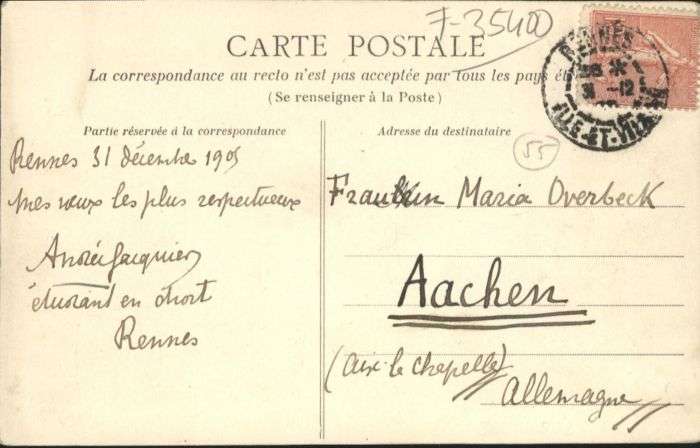 F-35400
CARTE POSTALE
La correspondance au recto n'est pas acceptée par tous les pays
(Se renseigner à la Poste)
Partie réservée à la correspondance
Adresse du destinataire
RENNES
31 -12
ILLE-ET-VILAINE
55
Rennes 31 décembre 1905
mes vœux les plus respectueux
André Jacquier
étudiant en droit
Rennes
Maria Overbeck
Aachen
(Aix la Chapelle)
Allemagne